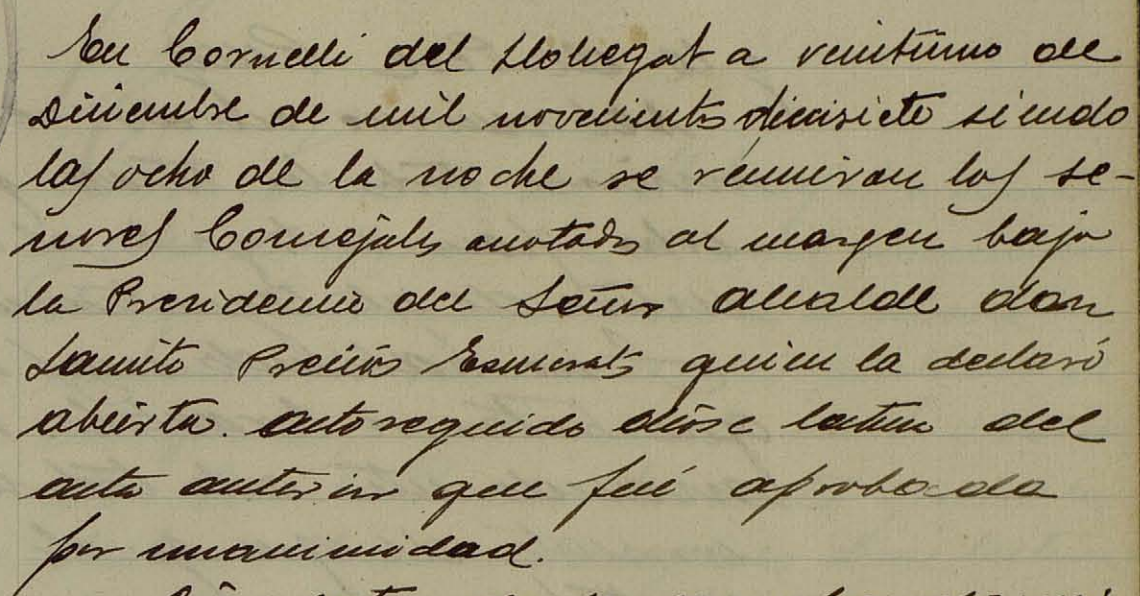 En Cornellá del Llobregat a veintiuno de
Diciembre de mil novecientos diecisiete siendo
las ocho de la noche se reunieron los se-
ñores Concejales anotados al margen bajo
la Presidencia del Señor alcalde don
Jacinto quien la declaró
abierta. acto seguido dióse lectura del
acta anterior que fué aprobada
por unanimidad.